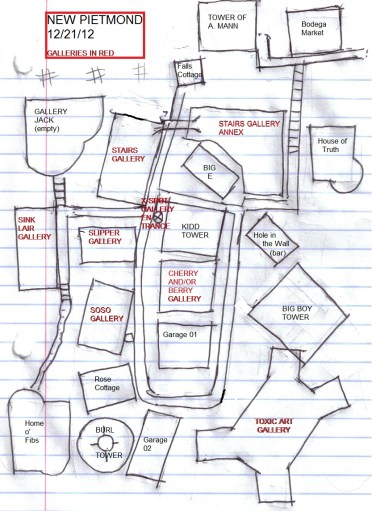 NEW PIETMOND
12/21/12
GALLERIES IN RED
TOWER OF
A. MANN
Bodega
Market
Falls
Cottage
GALLERY
JACK
(empty)
STAIRS
GALLERY
STAIRS GALLERY
ANNEX
House of
Truth
BIG
E
GALLERY
EN
TRANCE
SINK
LAIR
GALLERY
SLIPPER
GALLERY
KIDD
TOWER
Hole in
the Wall
(bar)
CHERRY
AND/OR
BERRY
GALLERY
SOSO
GALLERY
BIG BOY
TOWER
Garage 01
Rose
Cottage
TOXIC ART
GALLERY
Home
o'
Fibs
BURL
TOWER
Garage
02